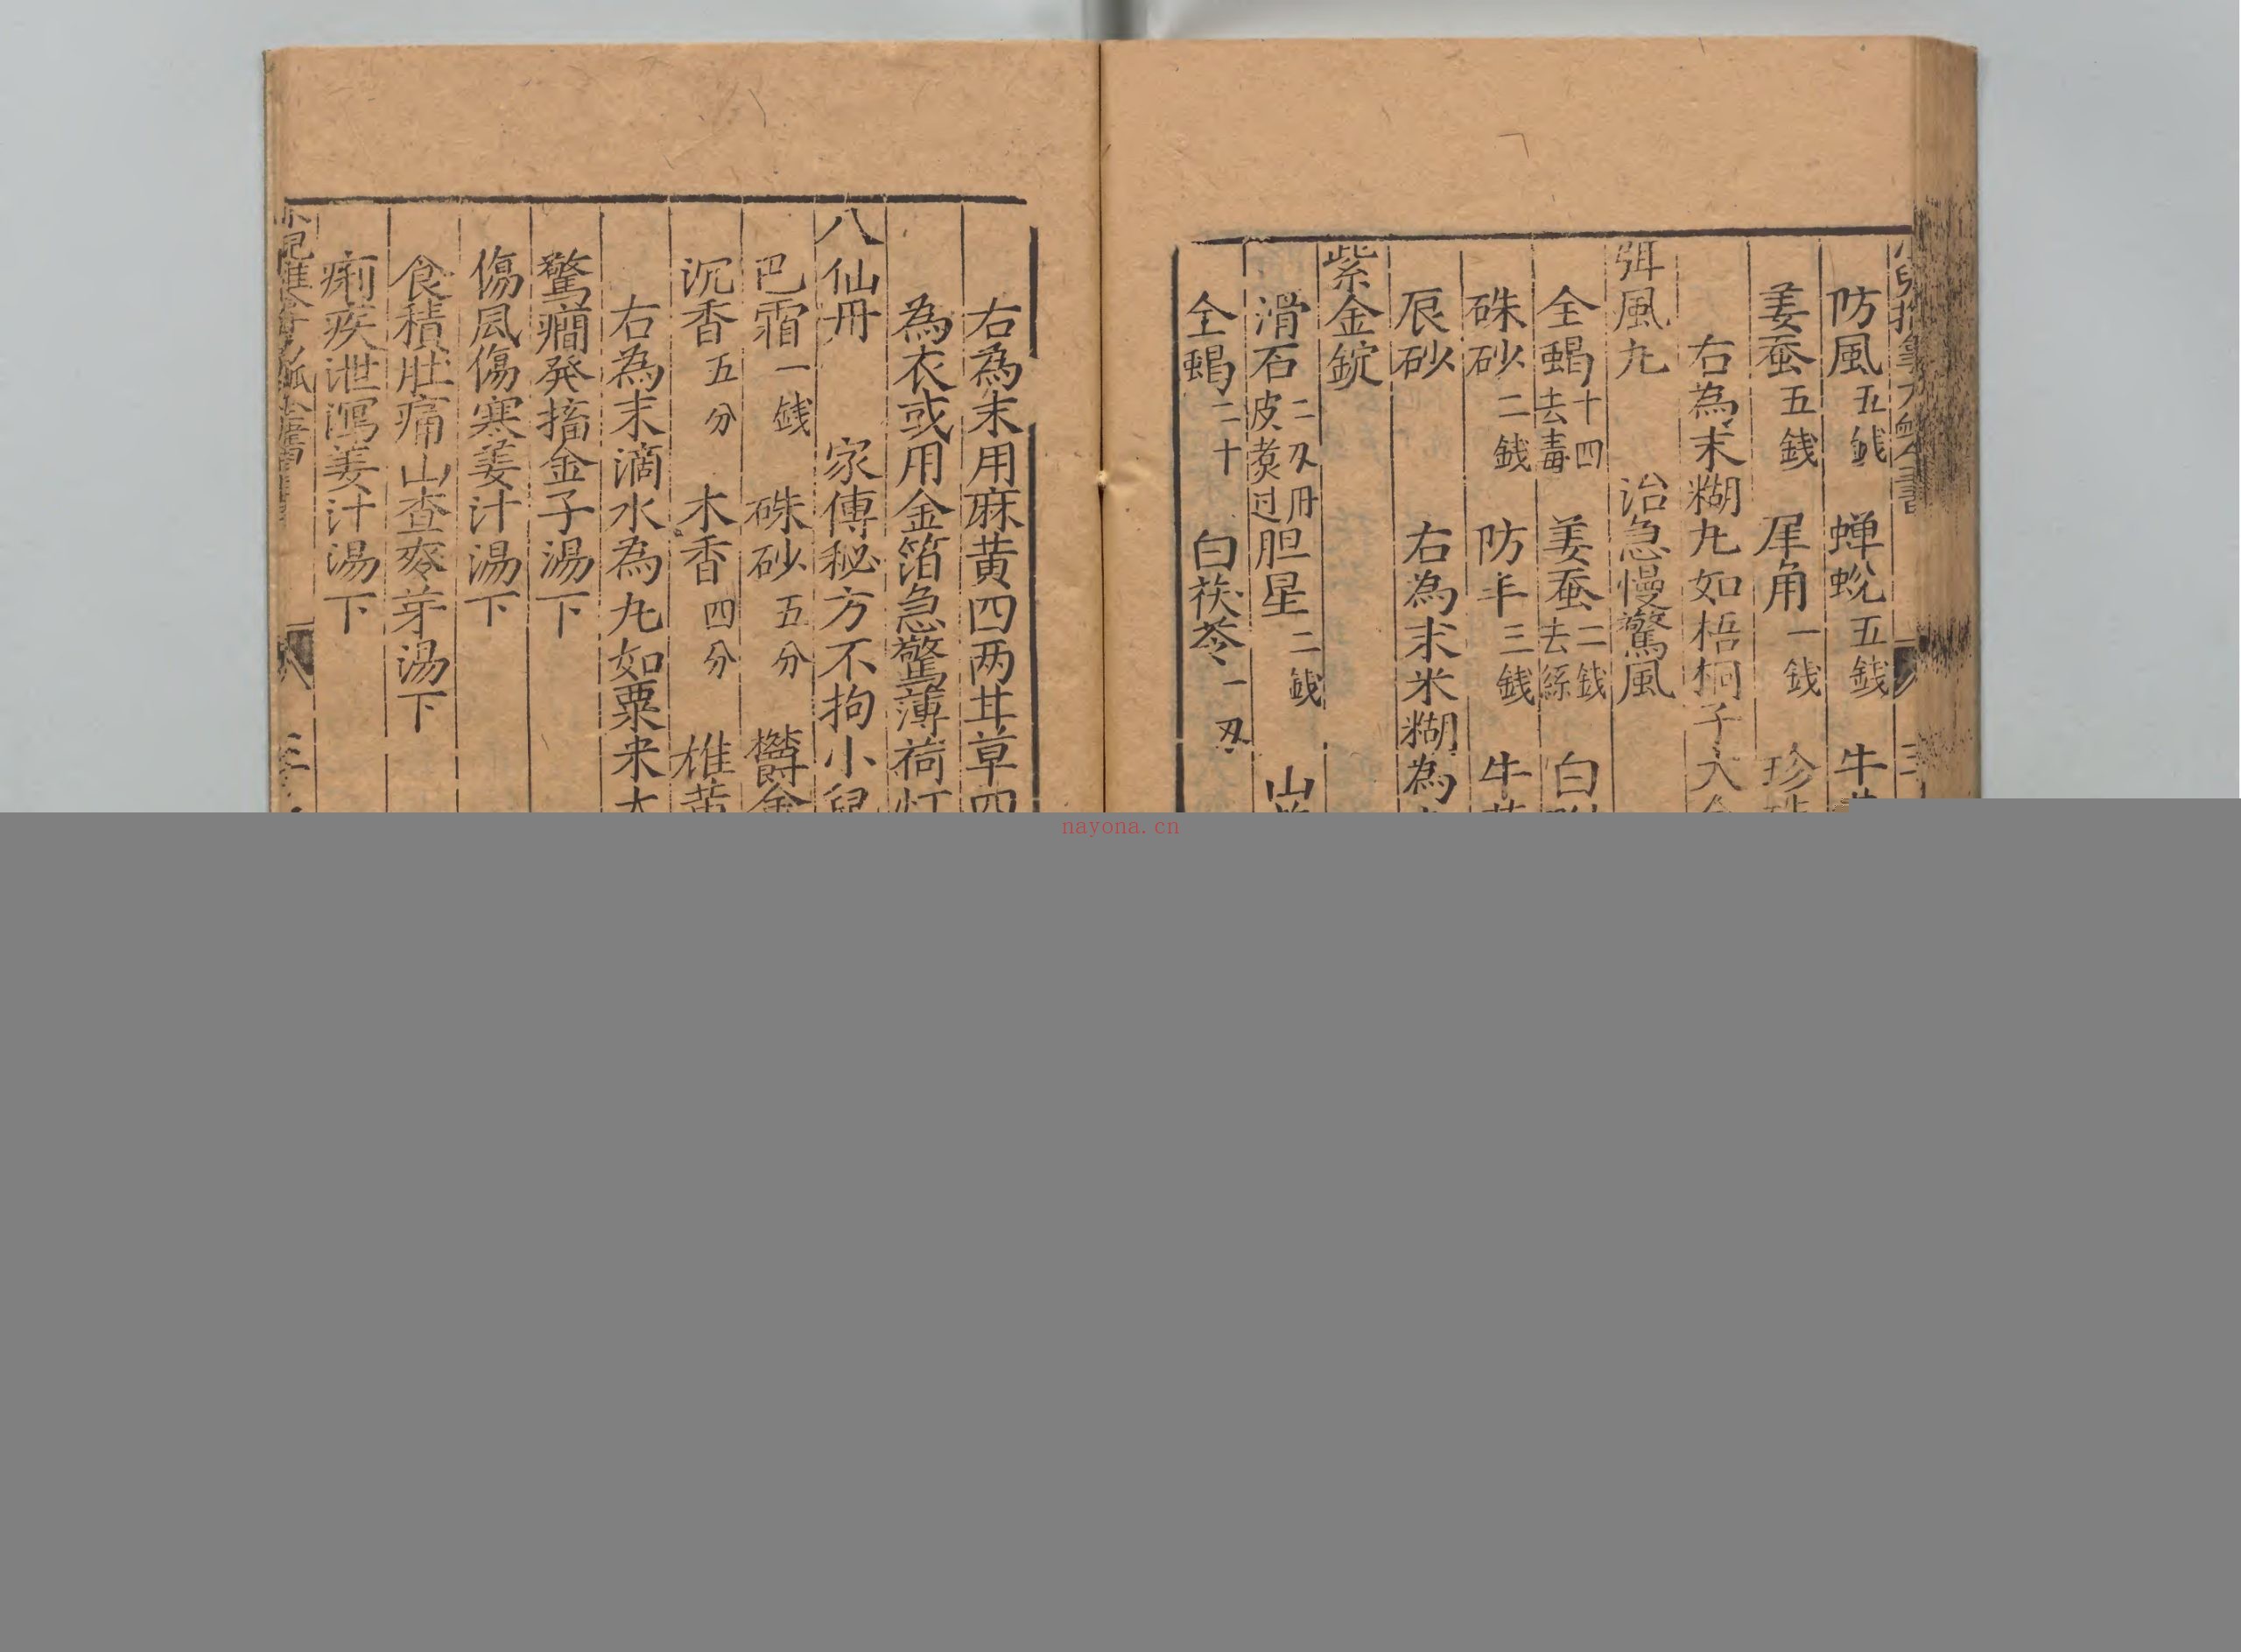 防風五錢　蟬蛻五錢　牛
姜蚕五錢　犀角一錢　珍
右為末糊丸如梧桐子大
弭風丸　治急慢驚風
全蝎十四去毒　姜蚕二錢去絲　白
硃砂二錢　防半三錢　牛
辰砂　右為末米糊為
紫金錠
滑石二双冊皮煮过胆星二錢　山
全蝎二十　白茯苓一双
右為末用麻黄四两甘草四
為衣或用金箔急驚薄荷灯
八仙冊　家傳秘方不拘小兒
巴霜一錢　硃砂五分　欝金
沉香五分　木香四分　雄黄
右為末滴水為丸如粟米大
驚癎発搐金子湯下
傷風傷寒姜汁湯下
食積肚痛山查麥芽湯下
痢疾泄瀉姜汁湯下
nayona.cn